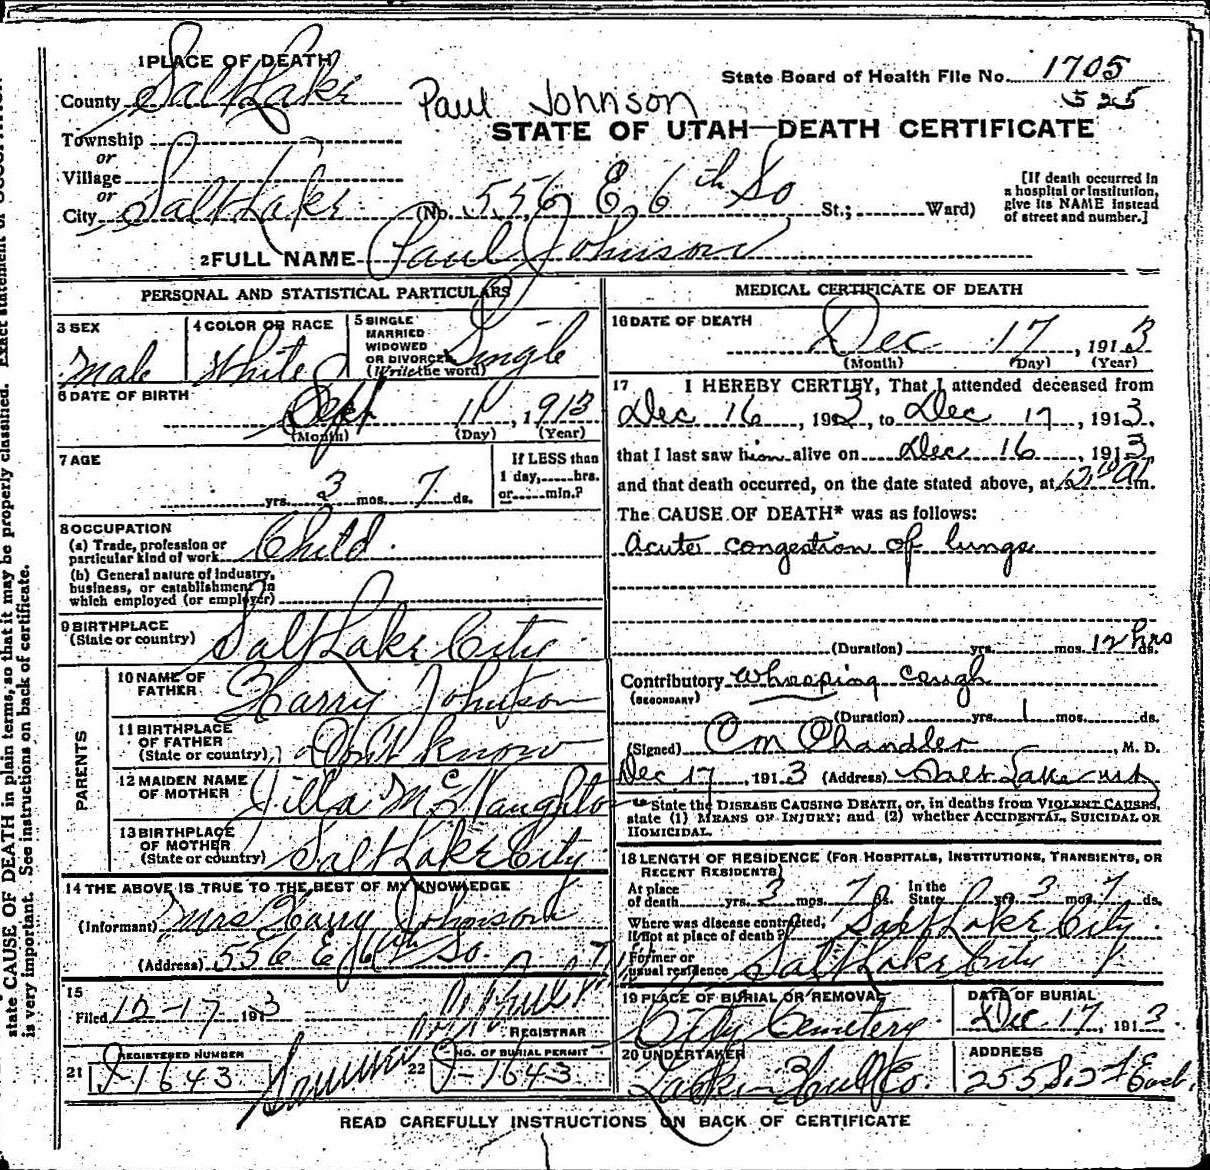 1 PLACE OF DEATH
County Salt Lake
Township
or
Village
or
City Salt Lake
State Board of Health File No. 1705
525
Paul Johnson
STATE OF UTAH—DEATH CERTIFICATE
(No. 556 E 6th So St.; Ward)
[If death occurred in
a hospital or institution,
give its NAME instead
of street and number.]
2 FULL NAME Paul Johnson
PERSONAL AND STATISTICAL PARTICULARS
3 SEX
Male
4 COLOR OR RACE
White
5 SINGLE
MARRIED
WIDOWED
OR DIVORCED
(Write the word)
Single
6 DATE OF BIRTH
Sept 11, 1913
(Month) (Day) (Year)
7 AGE
yrs. 3 mos. 7 ds.
If LESS than
1 day, hrs.
or min.?
8 OCCUPATION
(a) Trade, profession or
particular kind of work Child
(b) General nature of industry,
business, or establishment in
which employed (or employer)
9 BIRTHPLACE
(State or country) Salt Lake City
PARENTS
10 NAME OF
FATHER Harry Johnson
11 BIRTHPLACE
OF FATHER
(State or country) Don't know
12 MAIDEN NAME
OF MOTHER McNaughton
13 BIRTHPLACE
OF MOTHER
(State or country) Salt Lake City
14 THE ABOVE IS TRUE TO THE BEST OF MY KNOWLEDGE
(Informant) Mrs Harry Johnson
(Address) 556 E 6th So.
15
Filed 12-17 1913
REGISTRAR
21
REGISTERED NUMBER
J-1643
22
NO. OF BURIAL PERMIT
J-1643
MEDICAL CERTIFICATE OF DEATH
16 DATE OF DEATH
Dec 17, 1913
(Month) (Day) (Year)
17 I HEREBY CERTIFY, That I attended deceased from
Dec 16, 1913, to Dec 17, 1913,
that I last saw him alive on Dec 16, 1913,
and that death occurred, on the date stated above, at m.
The CAUSE OF DEATH* was as follows:
Acute congestion of lungs
(Duration) yrs. mos. 12 hrs ds.
Contributory Whooping Cough
(SECONDARY)
(Duration) yrs. 1 mos. ds.
(Signed) C M Chandler, M. D.
Dec 17, 1913 (Address) Salt Lake
* State the DISEASE CAUSING DEATH, or, in deaths from VIOLENT CAUSES,
state (1) MEANS OF INJURY; and (2) whether ACCIDENTAL, SUICIDAL OR
HOMICIDAL.
18 LENGTH OF RESIDENCE (FOR HOSPITALS, INSTITUTIONS, TRANSIENTS, OR
RECENT RESIDENTS)
At place
of death yrs. 3 mos. 7 ds.
In the
State yrs. 3 mos. 7 ds.
Where was disease contracted,
if not at place of death? Salt Lake City
Former or
usual residence Salt Lake City
19 PLACE OF BURIAL OR REMOVAL
City Cemetery
DATE OF BURIAL
Dec 17, 1913
20 UNDERTAKER
ADDRESS
READ CAREFULLY INSTRUCTIONS ON BACK OF CERTIFICATE
state CAUSE OF DEATH in plain terms, so that it may be properly classified. Exact statement of
is very important. See instructions on back of certificate.